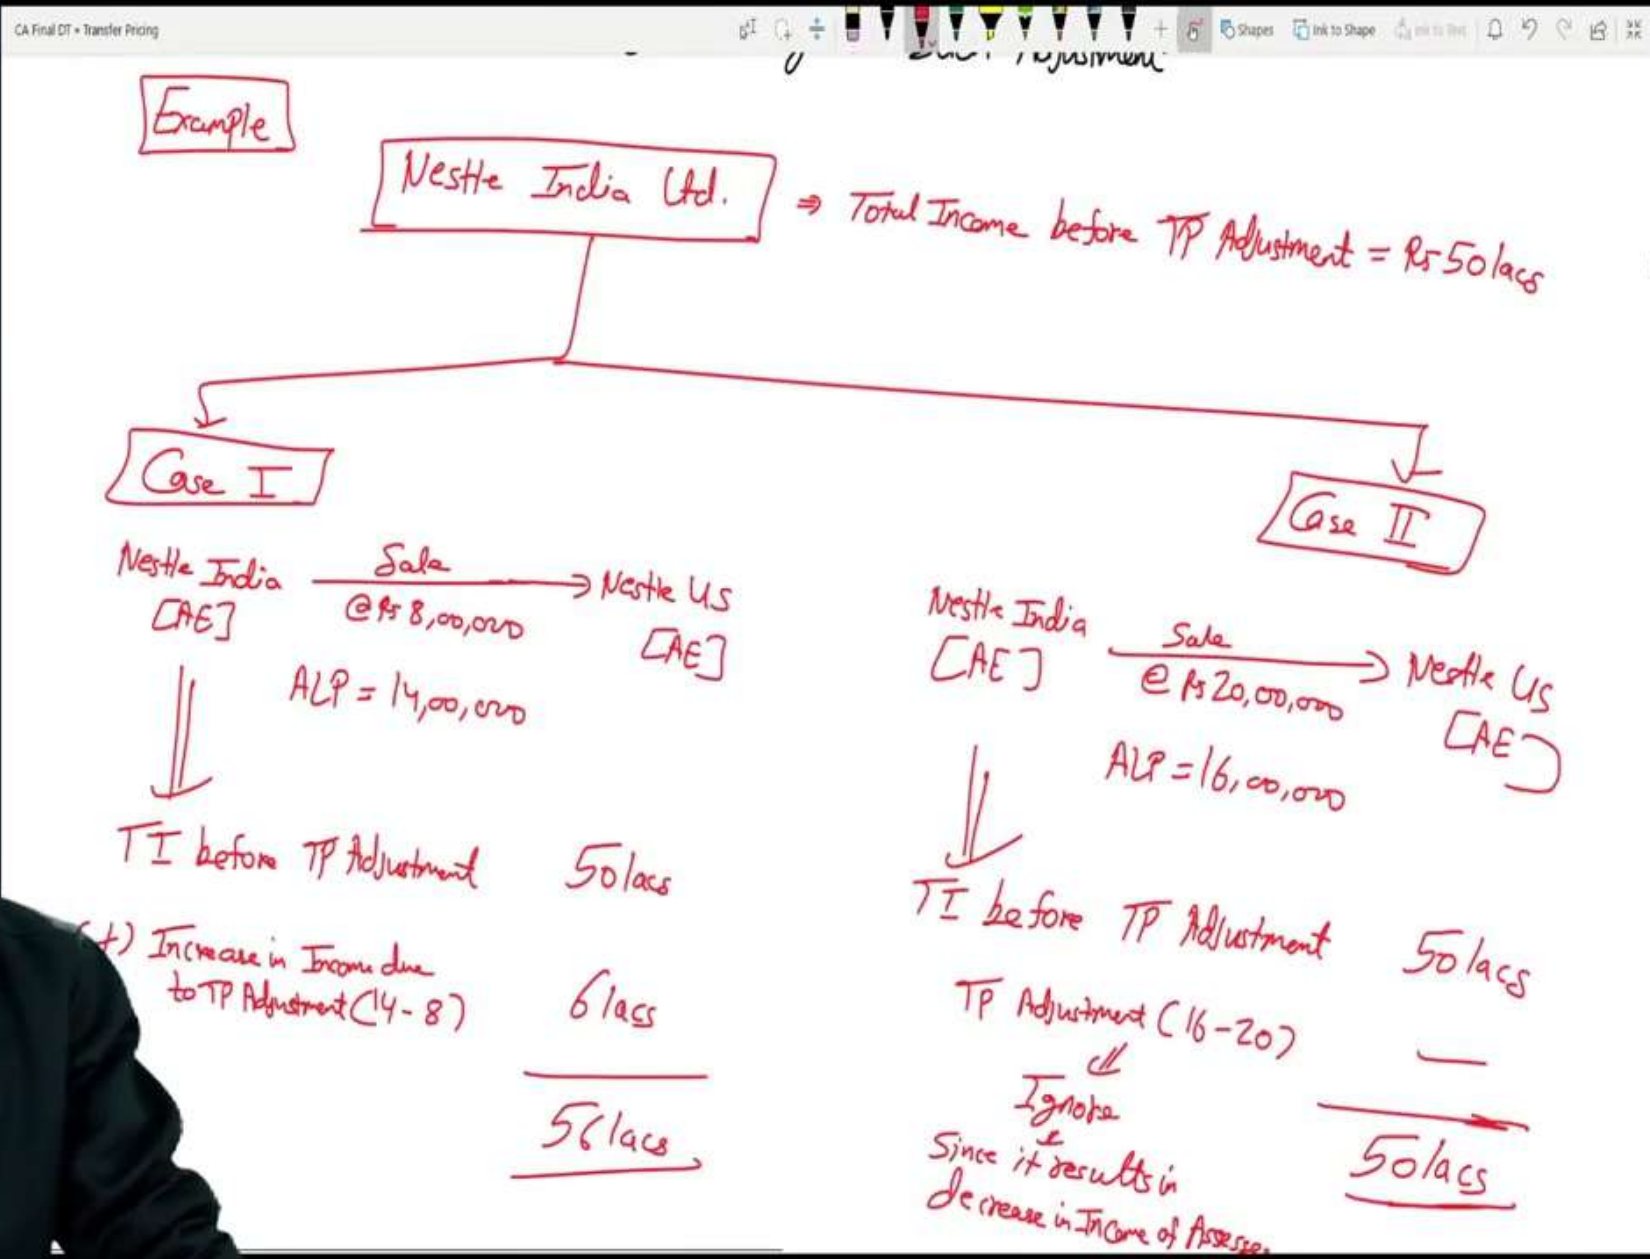 CA Final DT • Transfer Pricing
Shapes
Ink to Shape
Ink to Text
Adjustment
Example
Nestle India Ltd.
⇒ Total Income before TP Adjustment = Rs 50 lacs
Case I
Nestle India
[AE]
Sale
@ Rs 8,00,000
Nestle US
[AE]
ALP = 14,00,000
TI before TP Adjustment 50 lacs
(+) Increase in Income due
to TP Adjustment (14-8) 6 lacs
56 lacs
Case II
Nestle India
[AE]
Sale
@ Rs 20,00,000
Nestle US
[AE]
ALP = 16,00,000
TI before TP Adjustment 50 lacs
TP Adjustment (16-20) —
Ignore
Since it results in
decrease in Income of
50 lacs